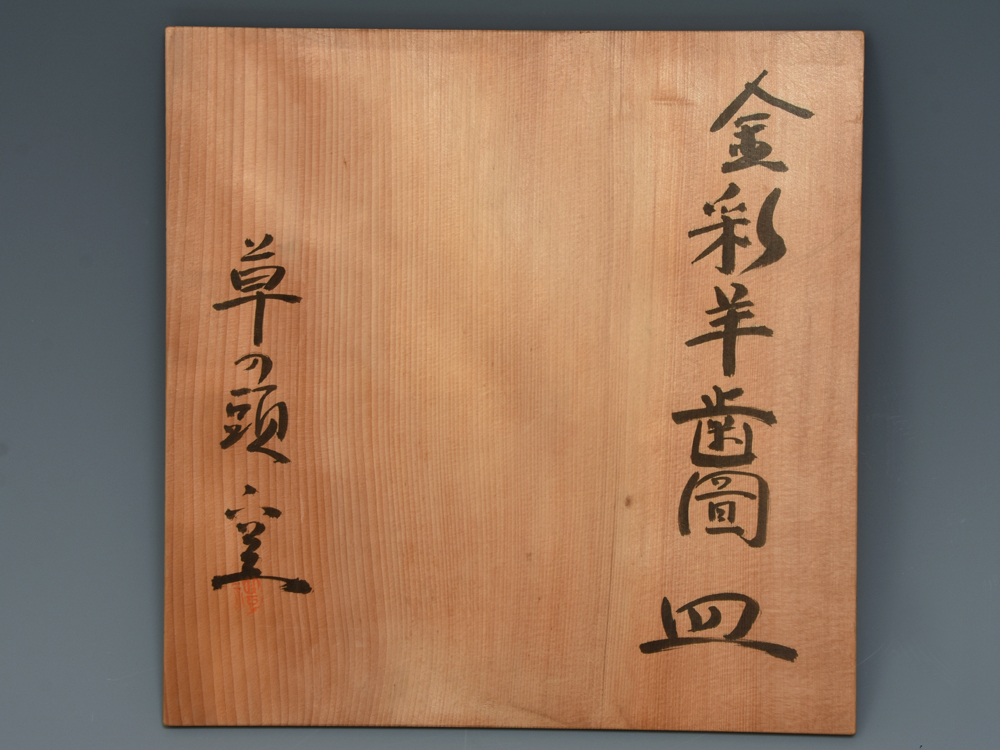 金彩羊歯圖皿
草の頭窯